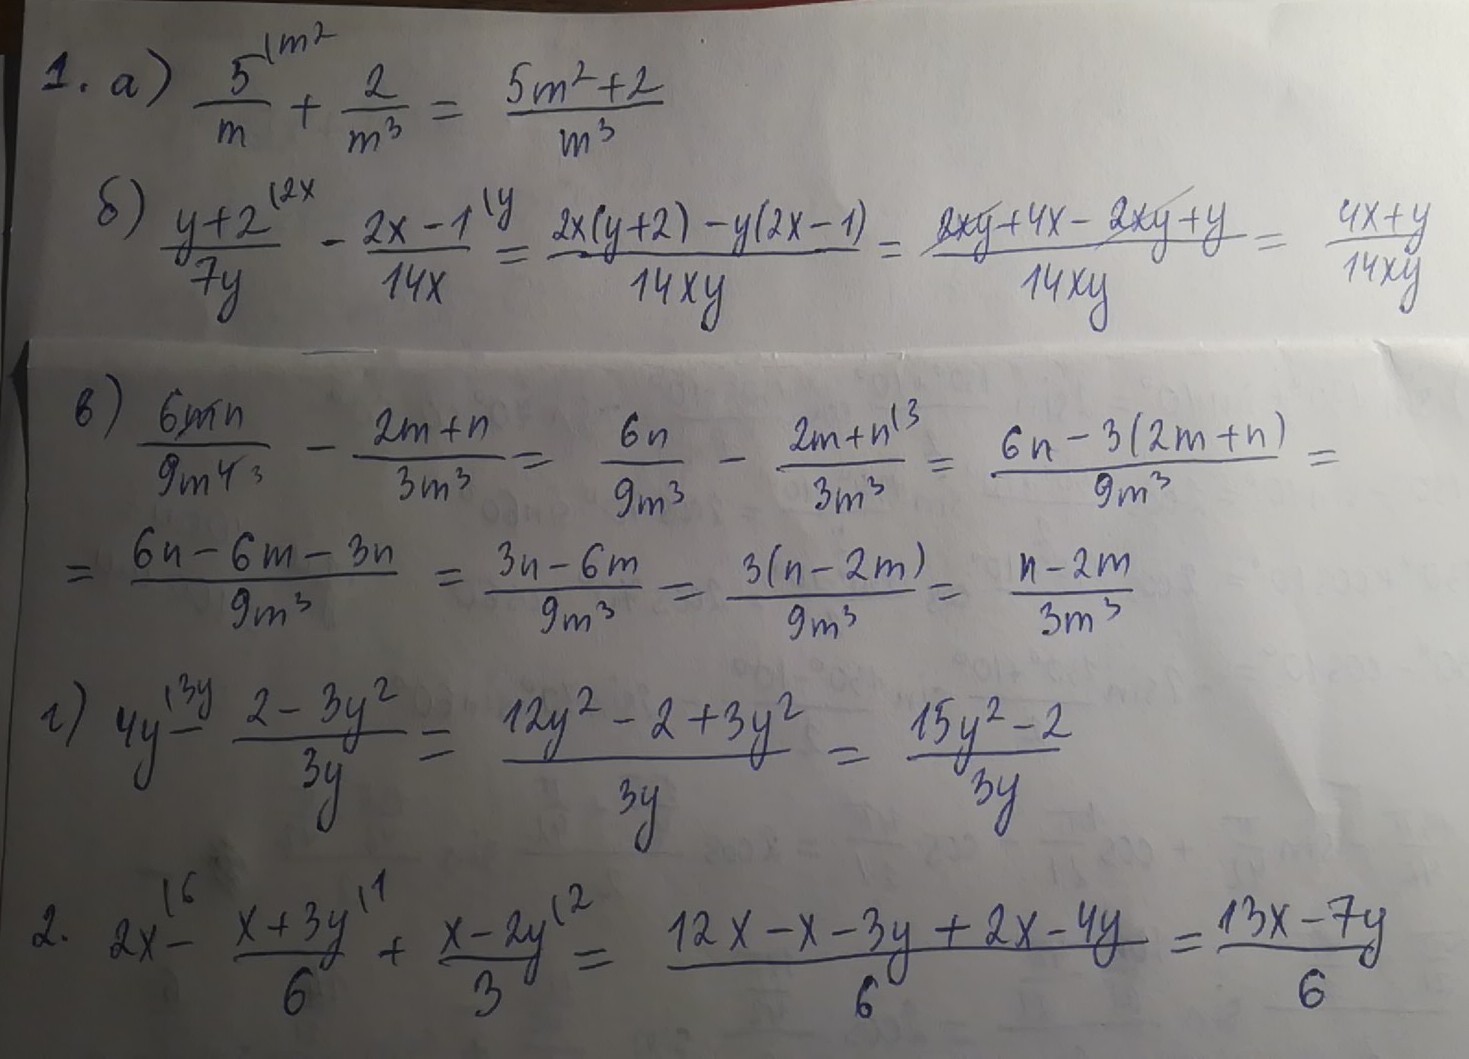 1. а) 5⁽ᵐ²/m + 2/m³ = (5m²+2)/m³
б) (y+2)⁽²ˣ/7y - (2x-1)⁽ʸ/14x = (2x(y+2)-y(2x-1))/14xy = (2xy+4x-2xy+y)/14xy = (4x+y)/14xy
в) 6mn/9m⁴ ³ - (2m+n)/3m³ = 6n/9m³ - (2m+n)⁽³/3m³ = (6n-3(2m+n))/9m³ =
= (6n-6m-3n)/9m³ = (3n-6m)/9m³ = 3(n-2m)/9m³ = (n-2m)/3m³
г) 4y⁽³ʸ - (2-3y²)/3y = (12y²-2+3y²)/3y = (15y²-2)/3y
2. 2x⁽⁶ - (x+3y)⁽¹/6 + (x-2y)⁽²/3 = (12x-x-3y+2x-4y)/6 = (13x-7y)/6